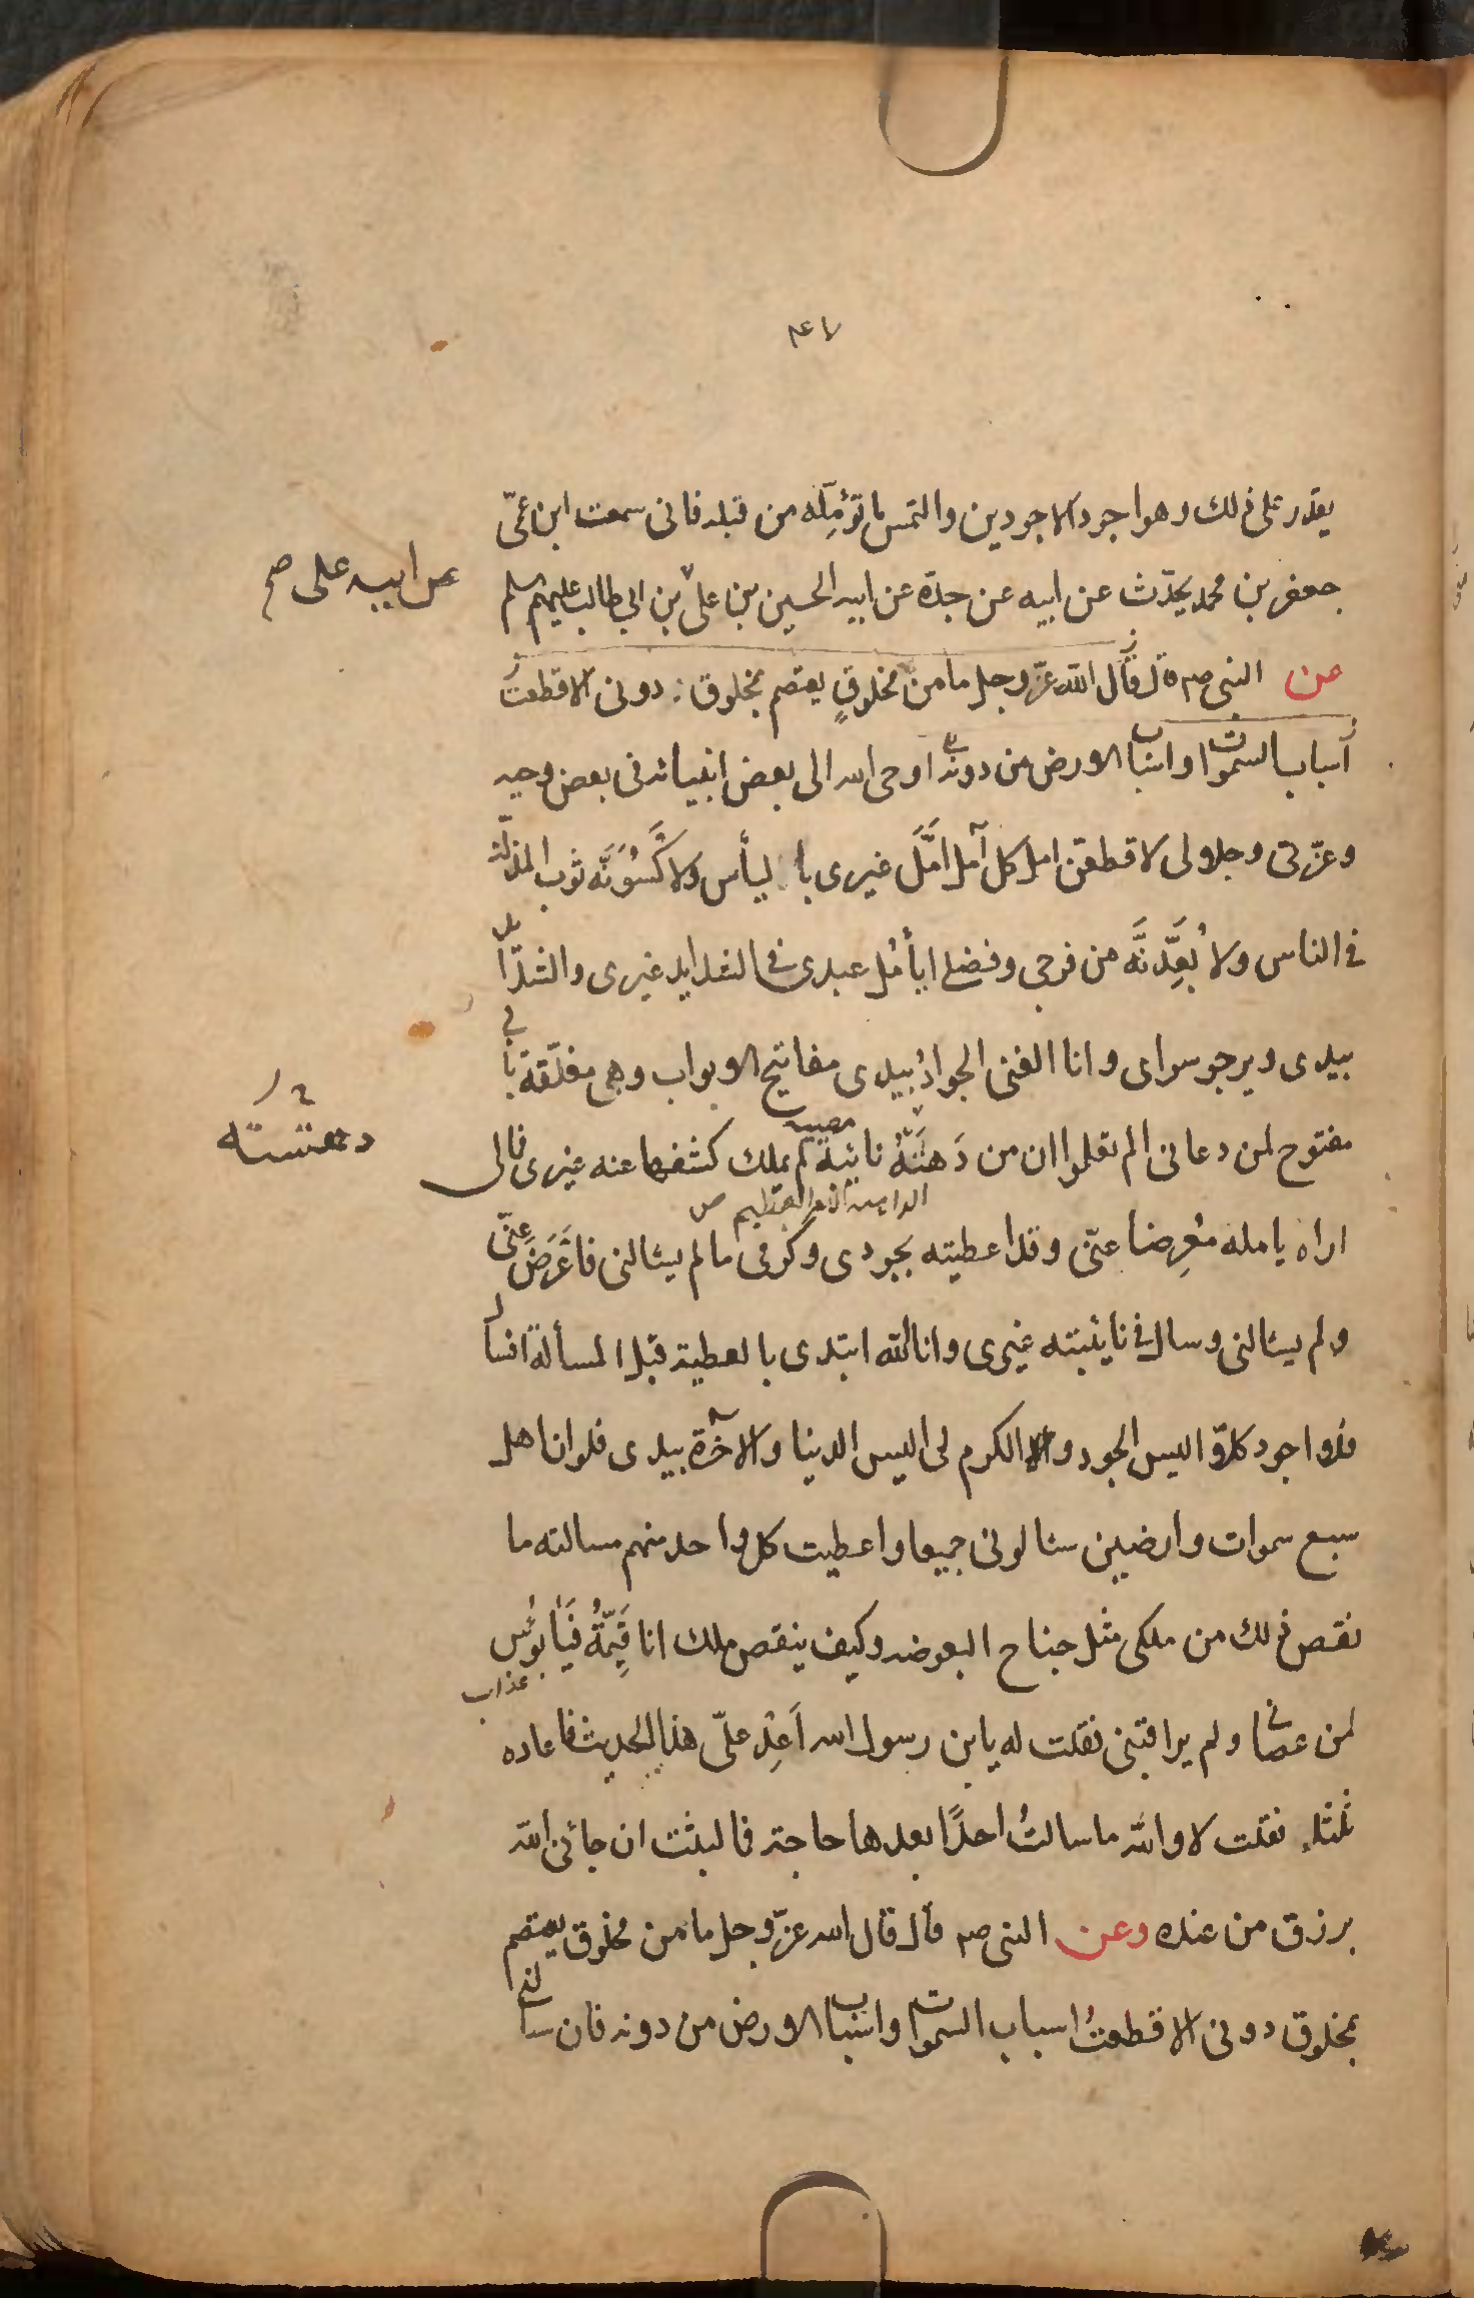 يقدر على ذلك وهو اجود الاجودين والتمس ما تؤمِّله من قبله فانى سمعت ابن عمّى
جعفر بن محمد يحدّث عن ابيه عن جدّه عن ابيه الحسين بن على بن ابى طالب عليهم سلم
عن ابيه على صح
عن النبى صم قال قال الله عزّ وجل ما من مخلوقٍ يعتصم بمخلوق دونى الا قطعتُ
اسباب السموات واسباب الارض من دونه اوحى الله الى بعض انبيائه فى بعض وحيه
وعزّتى وجلالى لاقطعن امل كل آمل امَّلَ غيرى باليأس ولاكْسُوَنَّه ثوب المذلّة
فى الناس ولا بُعِّدَنَّه من فرجى وفضلى ايأمُل عبدى فى الشدايد غيرى والشدايد
بيدى ويرجو سواى وانا الغنى الجوادُ بيدى مفاتيح الابواب وهى مغلّقة بابى
مفتوح لمن دعانى الم تعلموا ان من دَهَتَهُ نائبة لم يملك كشفها عنه غيرى فالى
مصيبه
دهشته
الداهية الامر العظيم ص
اراه يامله مُعرِضا عنّى وقد اعطيته بجودى وكرمى ما لم يسئالنى فاعَرَضَ عنّى
ولم يسئالنى وسال فى نائبته غيرى وانا الله ابتدى بالعطية قبل المسألة افسأل
فلا اجود كلاّ اليس الجود والكرم لى اليس الدينا والآخرة بيدى فلو ان اهل
سبع سموات وارضين سئالونى جميعا واعطيت كل واحد منهم مسالته ما
نقص ذلك من ملكى مثل جناح البعوضه وكيف ينقص ملك انا قَيِّمُهُ فيَا بُؤس
عذاب
لمن عصانى ولم يراقبنى فقلت له يا بن رسول الله اَعِدْ علىّ هذا الحديث فاعاده
ثلثا فقلت لا والله ما سالتُ احدًا بعدها حاجة فما لبثت ان جائنى الله
برزق من عنده وعن النبى صم قال قال الله عزّ وجل ما من مخلوق يعتصم
بمخلوق دونى الا قطعتُ اسباب السموات واسباب الارض من دونه فان سالنى